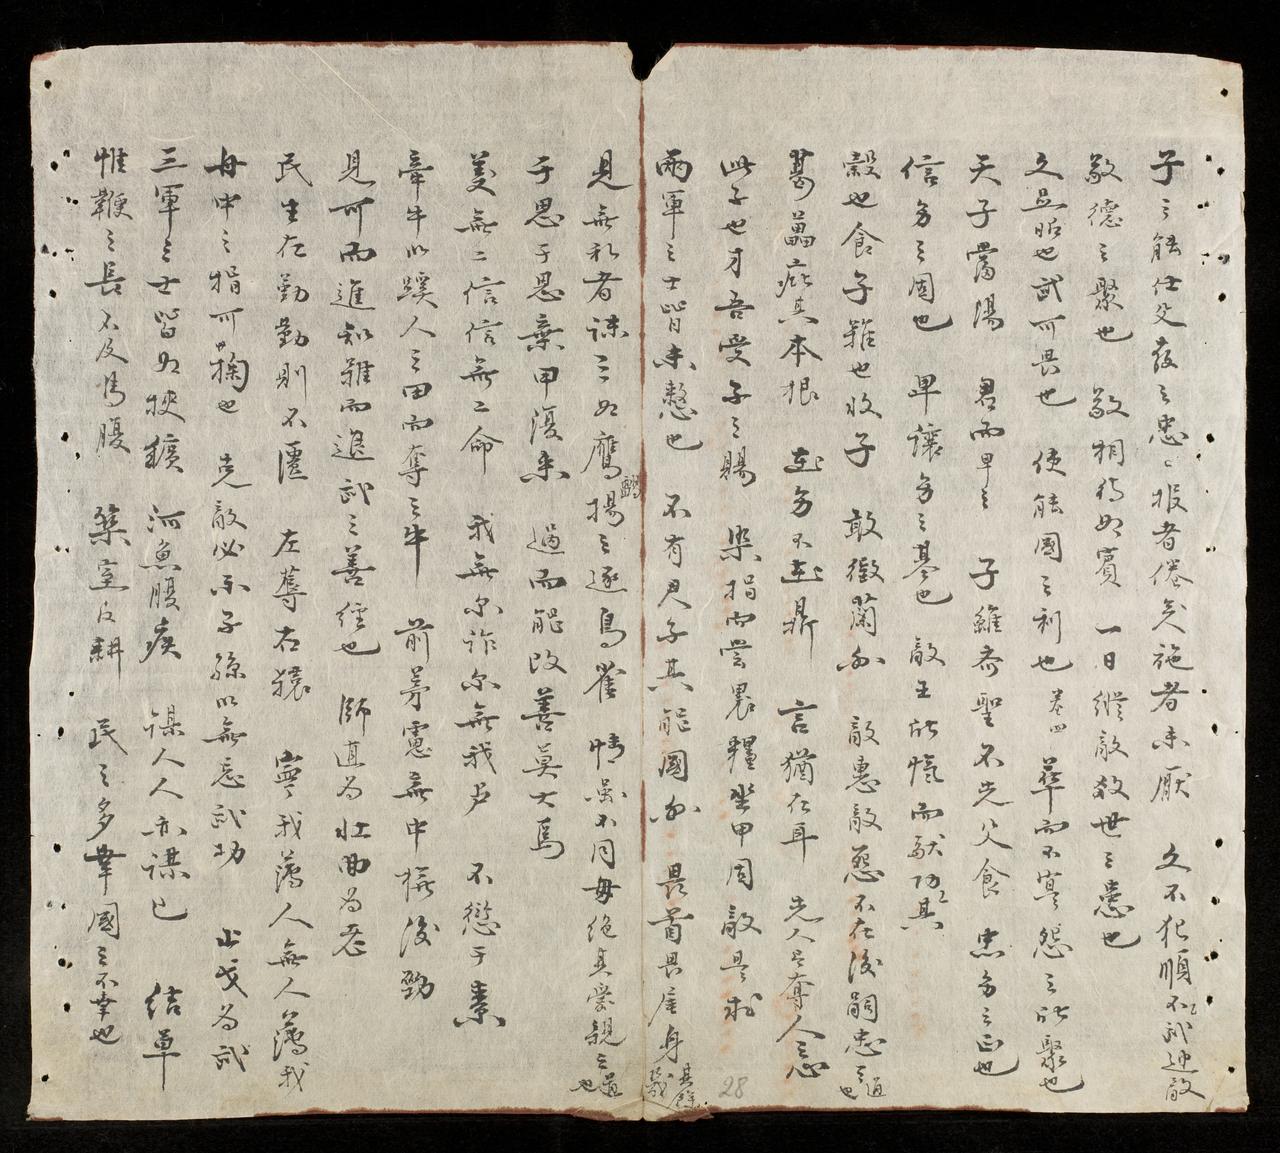 子之能仕父教之忠 報者倦矣施者未厭 文不犯順武不違敵
敬德之聚也 敬相待如賓 一日縱敵數世之患也
文足昭也武可畏也 使能國之利也 卷四 華而不實怨之所聚也
天子當陽 君而卑之 子雖齊聖不先父食 忠身之正也
信身之固也 卑讓身之基也 敵王所愾而獻其功
穀也食子難也收子 敢徵蘭乎 敵惠敵怨不在後嗣忠之道也
葛藟庇其本根 在身不在鼎 言猶在耳 先人有奪人之心
此子也才吾受子之賜 染指而嘗 裹糧坐甲固敵是求
兩軍之士皆未憖也 不有君子其能國乎 畏首畏尾身其餘幾
見無礼者誅之如鷹鸇之逐鳥雀 情雖不同毋絕其愛親之道也
于思于思棄甲復來 過而能改善莫大焉
美無二信信無二命 我無尔詐尔無我虞 不愆于素
牽牛以蹊人之田而奪之牛 前茅慮無中權後勁
見可而進知難而退武之善經也 師直為壯曲為老
民生在勤勤則不匱 左蓐右轅 寧我薄人無人薄我
舟中之指可掬也 克敵必示子孫以無忘武功 止戈為武
三軍之士皆如挾纊 河魚腹疾 謀人人亦謀己 結草
惟鞭之長不及馬腹 築室反耕 民之多幸國之不幸也
28